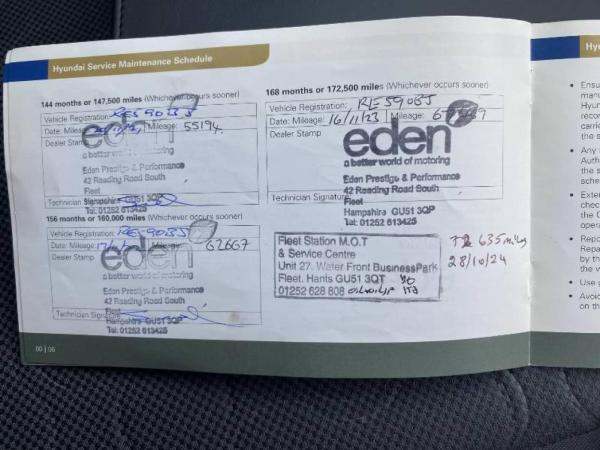 Hyundai Service Maintenance Schedule
144 months or 147,500 miles (Whichever occurs sooner)
Vehicle Registration: RE59OBJ
Date: Mileage: Mileage: 55194.
Dealer Stamp
eden
a better world of motoring
Eden Prestige & Performance
42 Reading Road South
Fleet
Technician Signature
Hampshire GU51 3QP
Tel: 01252 613425
156 months or 160,000 miles (Whichever occurs sooner)
Vehicle Registration: RE59OBJ
Date: Mileage: Mileage: 62667
Dealer Stamp
eden
a better world of motoring
Eden Prestige & Performance
42 Reading Road South
Fleet
Technician Signature
Hampshire GU51 3QP
Tel: 01252 613425
00 | 06
168 months or 172,500 miles (Whichever occurs sooner)
Vehicle Registration: RE59OBJ
Date: Mileage: 16/11/23 Mileage:
Dealer Stamp
eden
a better world of motoring
Eden Prestige & Performance
42 Reading Road South
Fleet
Technician Signature
Hampshire GU51 3QP
Tel: 01252 613425
Fleet Station M.O.T
& Service Centre
Unit 27. Water Front Business Park
Fleet. Hants GU51 3QT
01252 628 808
635 miles
28/10/24
Hyu
Ensu
manu
Hyun
recor
carrie
the s
Any
Auth
the s
sche
Exter
chec
the C
opera
Repo
Repa
by th
the v
Use
Avoid
on th